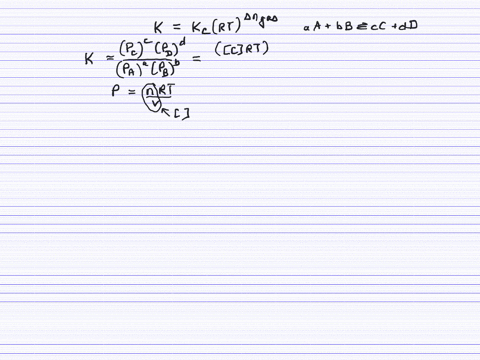 K = Kc(RT)^Δngas aA + bB ⇌ cC + dD
K = (PC)^c (PD)^d / (PA)^a (PB)^b = ([C]RT)
P = nRT / V ← [ ]